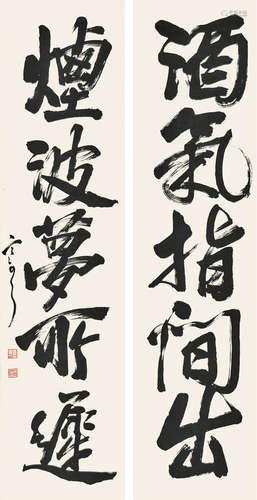 酒氣指間出
煙波夢所